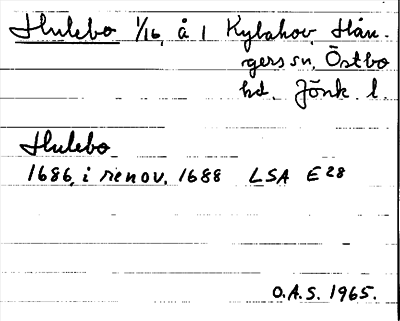 Hulebo 1/16, å 1 Kylahov, Hån-
gers sn, Östbo
hd. Jönk. l.
Hulebo
1686, i renov. 1688 LSA E28
O.A.S. 1965.